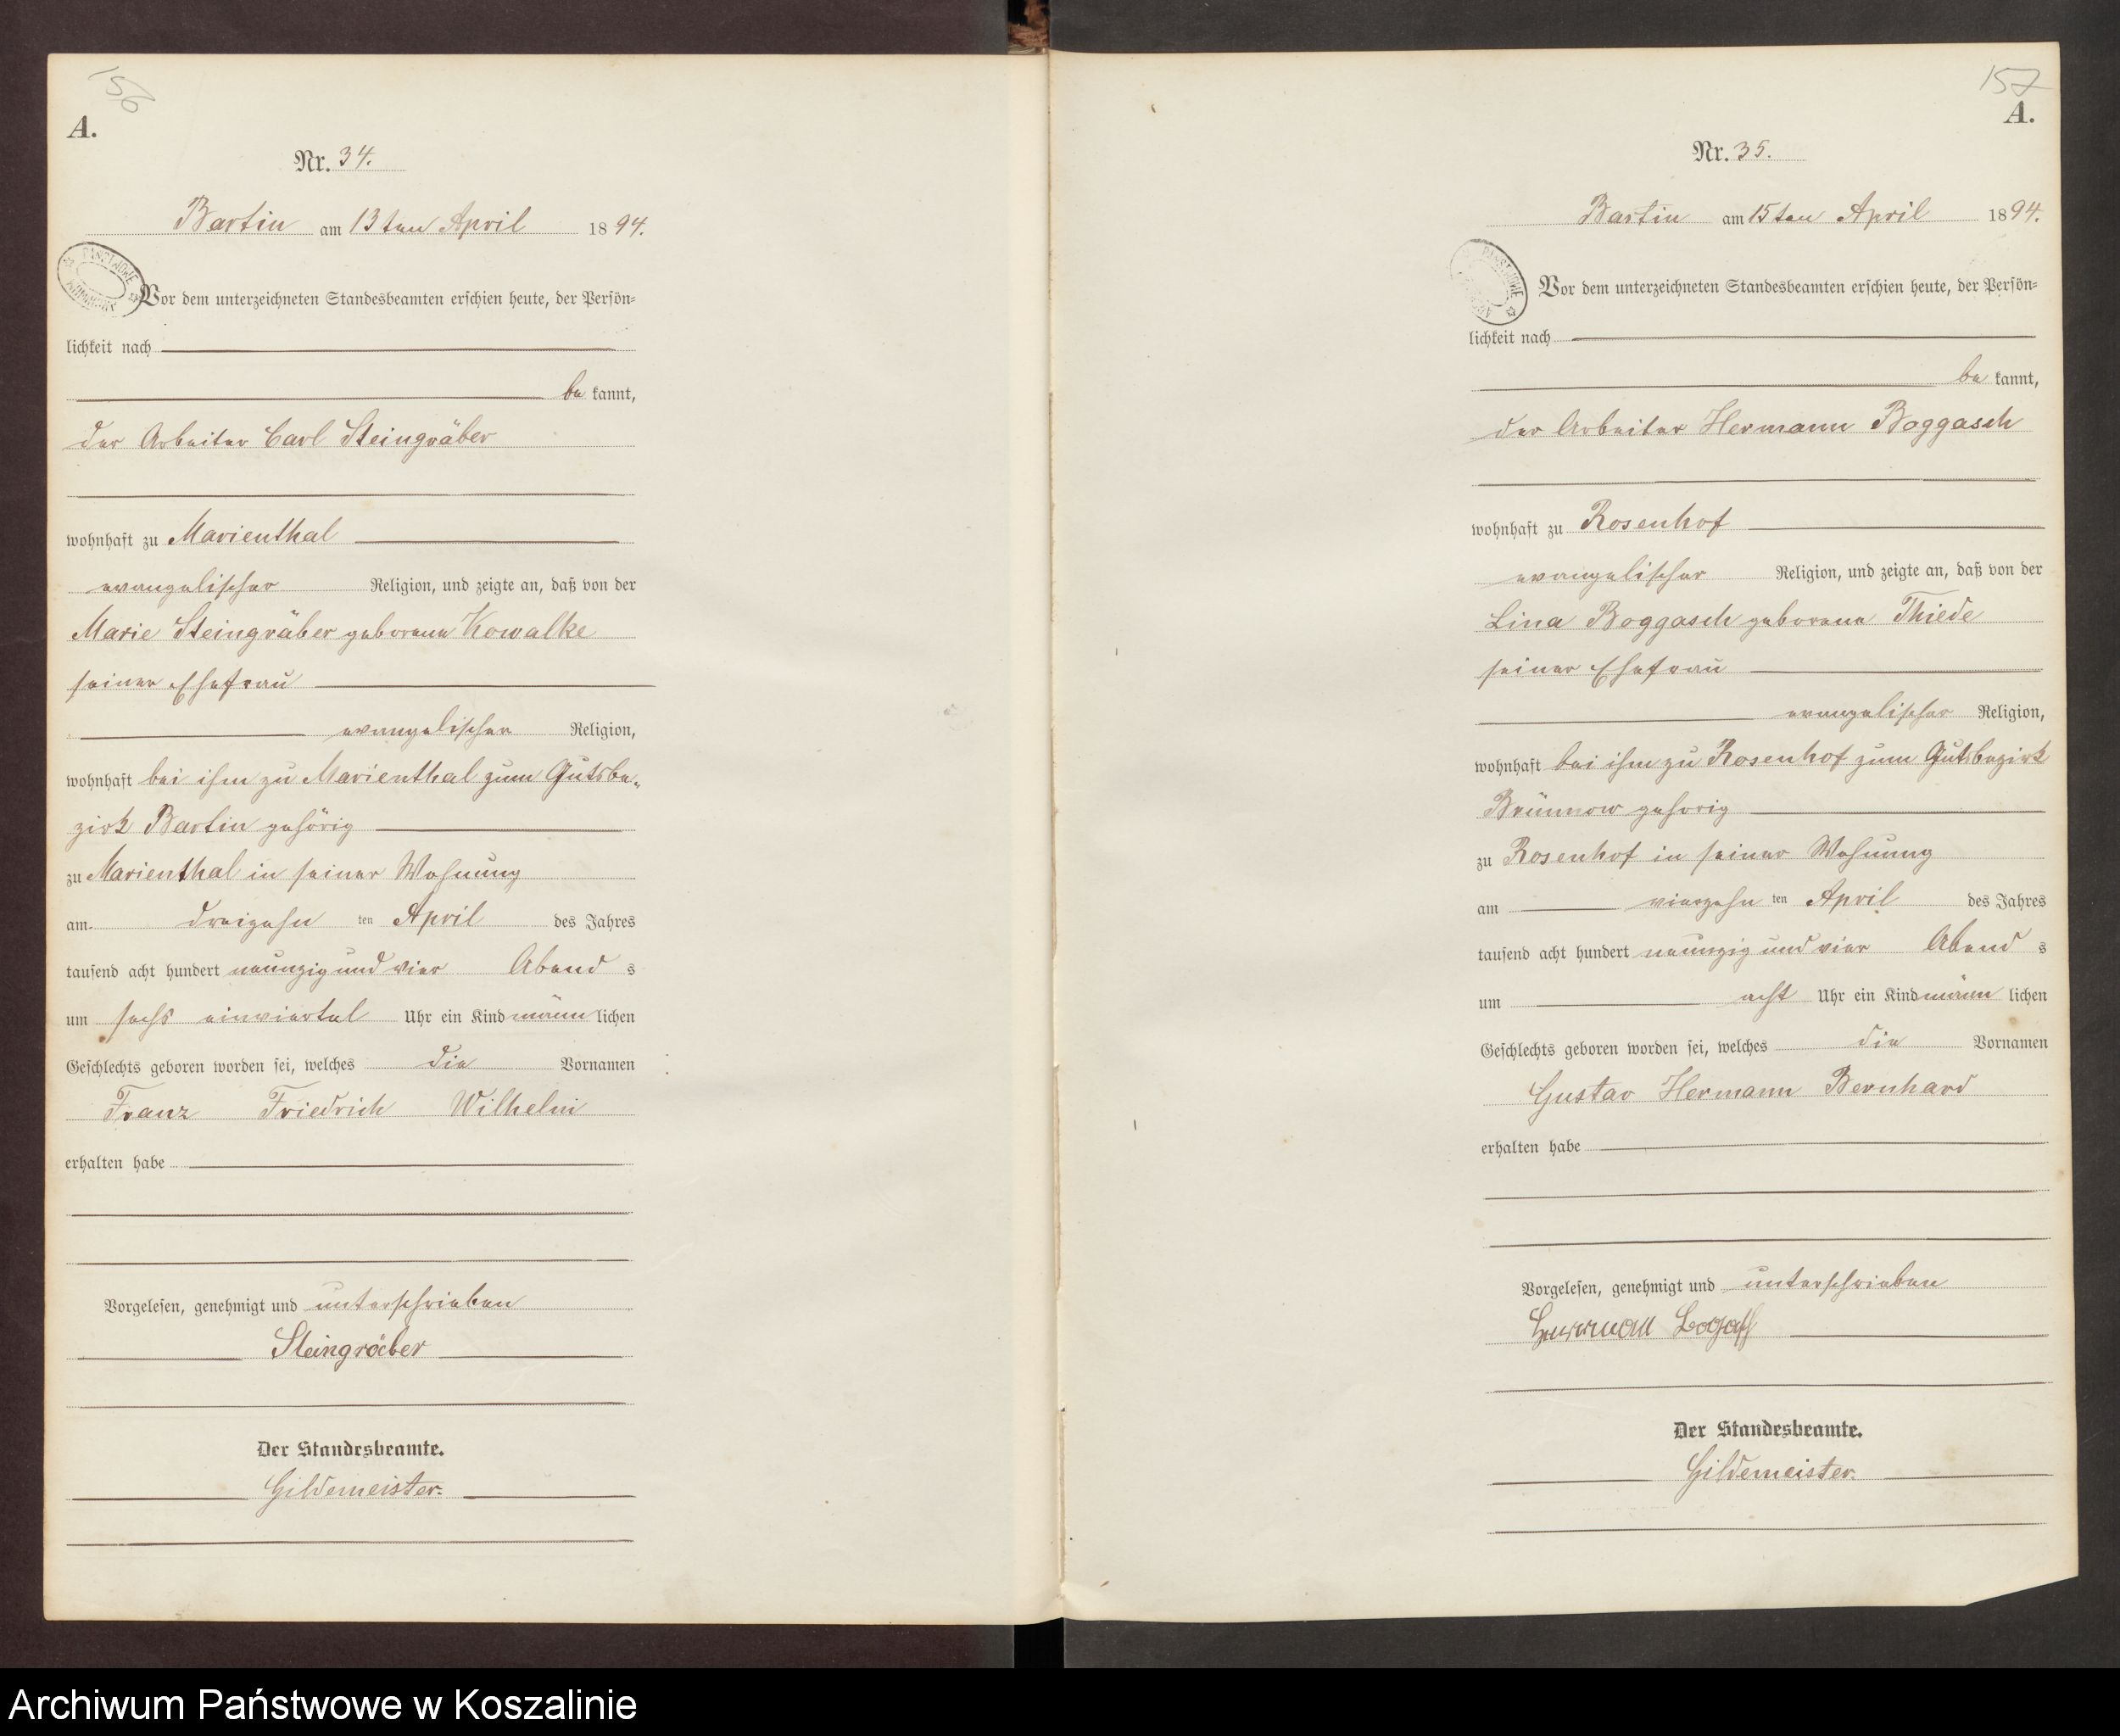 156
A.
Nr. 34.
Bartin am 13ten April 1894.
Vor dem unterzeichneten Standesbeamten erschien heute, der Persön-
lichkeit nach
be kannt,
der Arbeiter Carl Steingräber
wohnhaft zu Marienthal
evangelischer Religion, und zeigte an, daß von der
Marie Steingräber geborene Kowalke
seiner Ehefrau
evangelischer Religion,
wohnhaft bei ihm zu Marienthal zum Gutsbe-
zirk Bartin gehörig
zu Marienthal in seiner Wohnung
am dreizehn ten April des Jahres
tausend acht hundert neunzig und vier Abend s
um sechs einviertel Uhr ein Kind männ lichen
Geschlechts geboren worden sei, welches die Vornamen
Franz Friedrich Wilhelm
erhalten habe
Vorgelesen, genehmigt und unterschrieben
Steingräber
Der Standesbeamte.
Gildemeister.
157
A.
Nr. 35.
Bartin am 15ten April 1894.
PAŃSTWOWE
Vor dem unterzeichneten Standesbeamten erschien heute, der Persön-
lichkeit nach
be kannt,
der Arbeiter Hermann Boggasch
wohnhaft zu Rosenhof
evangelischer Religion, und zeigte an, daß von der
Lina Boggasch geborene Thiede
seiner Ehefrau
evangelischer Religion,
wohnhaft bei ihm zu Rosenhof zum Gutsbezirk
Brünnow gehorig
zu Rosenhof in seiner Wohnung
am vierzehn ten April des Jahres
tausend acht hundert neunzig und vier Abend s
um acht Uhr ein Kind männ lichen
Geschlechts geboren worden sei, welches die Vornamen
Gustav Hermann Bernhard
erhalten habe
Vorgelesen, genehmigt und unterschrieben
Herrman
Der Standesbeamte.
Gildemeister.
Archiwum Państwowe w Koszalinie